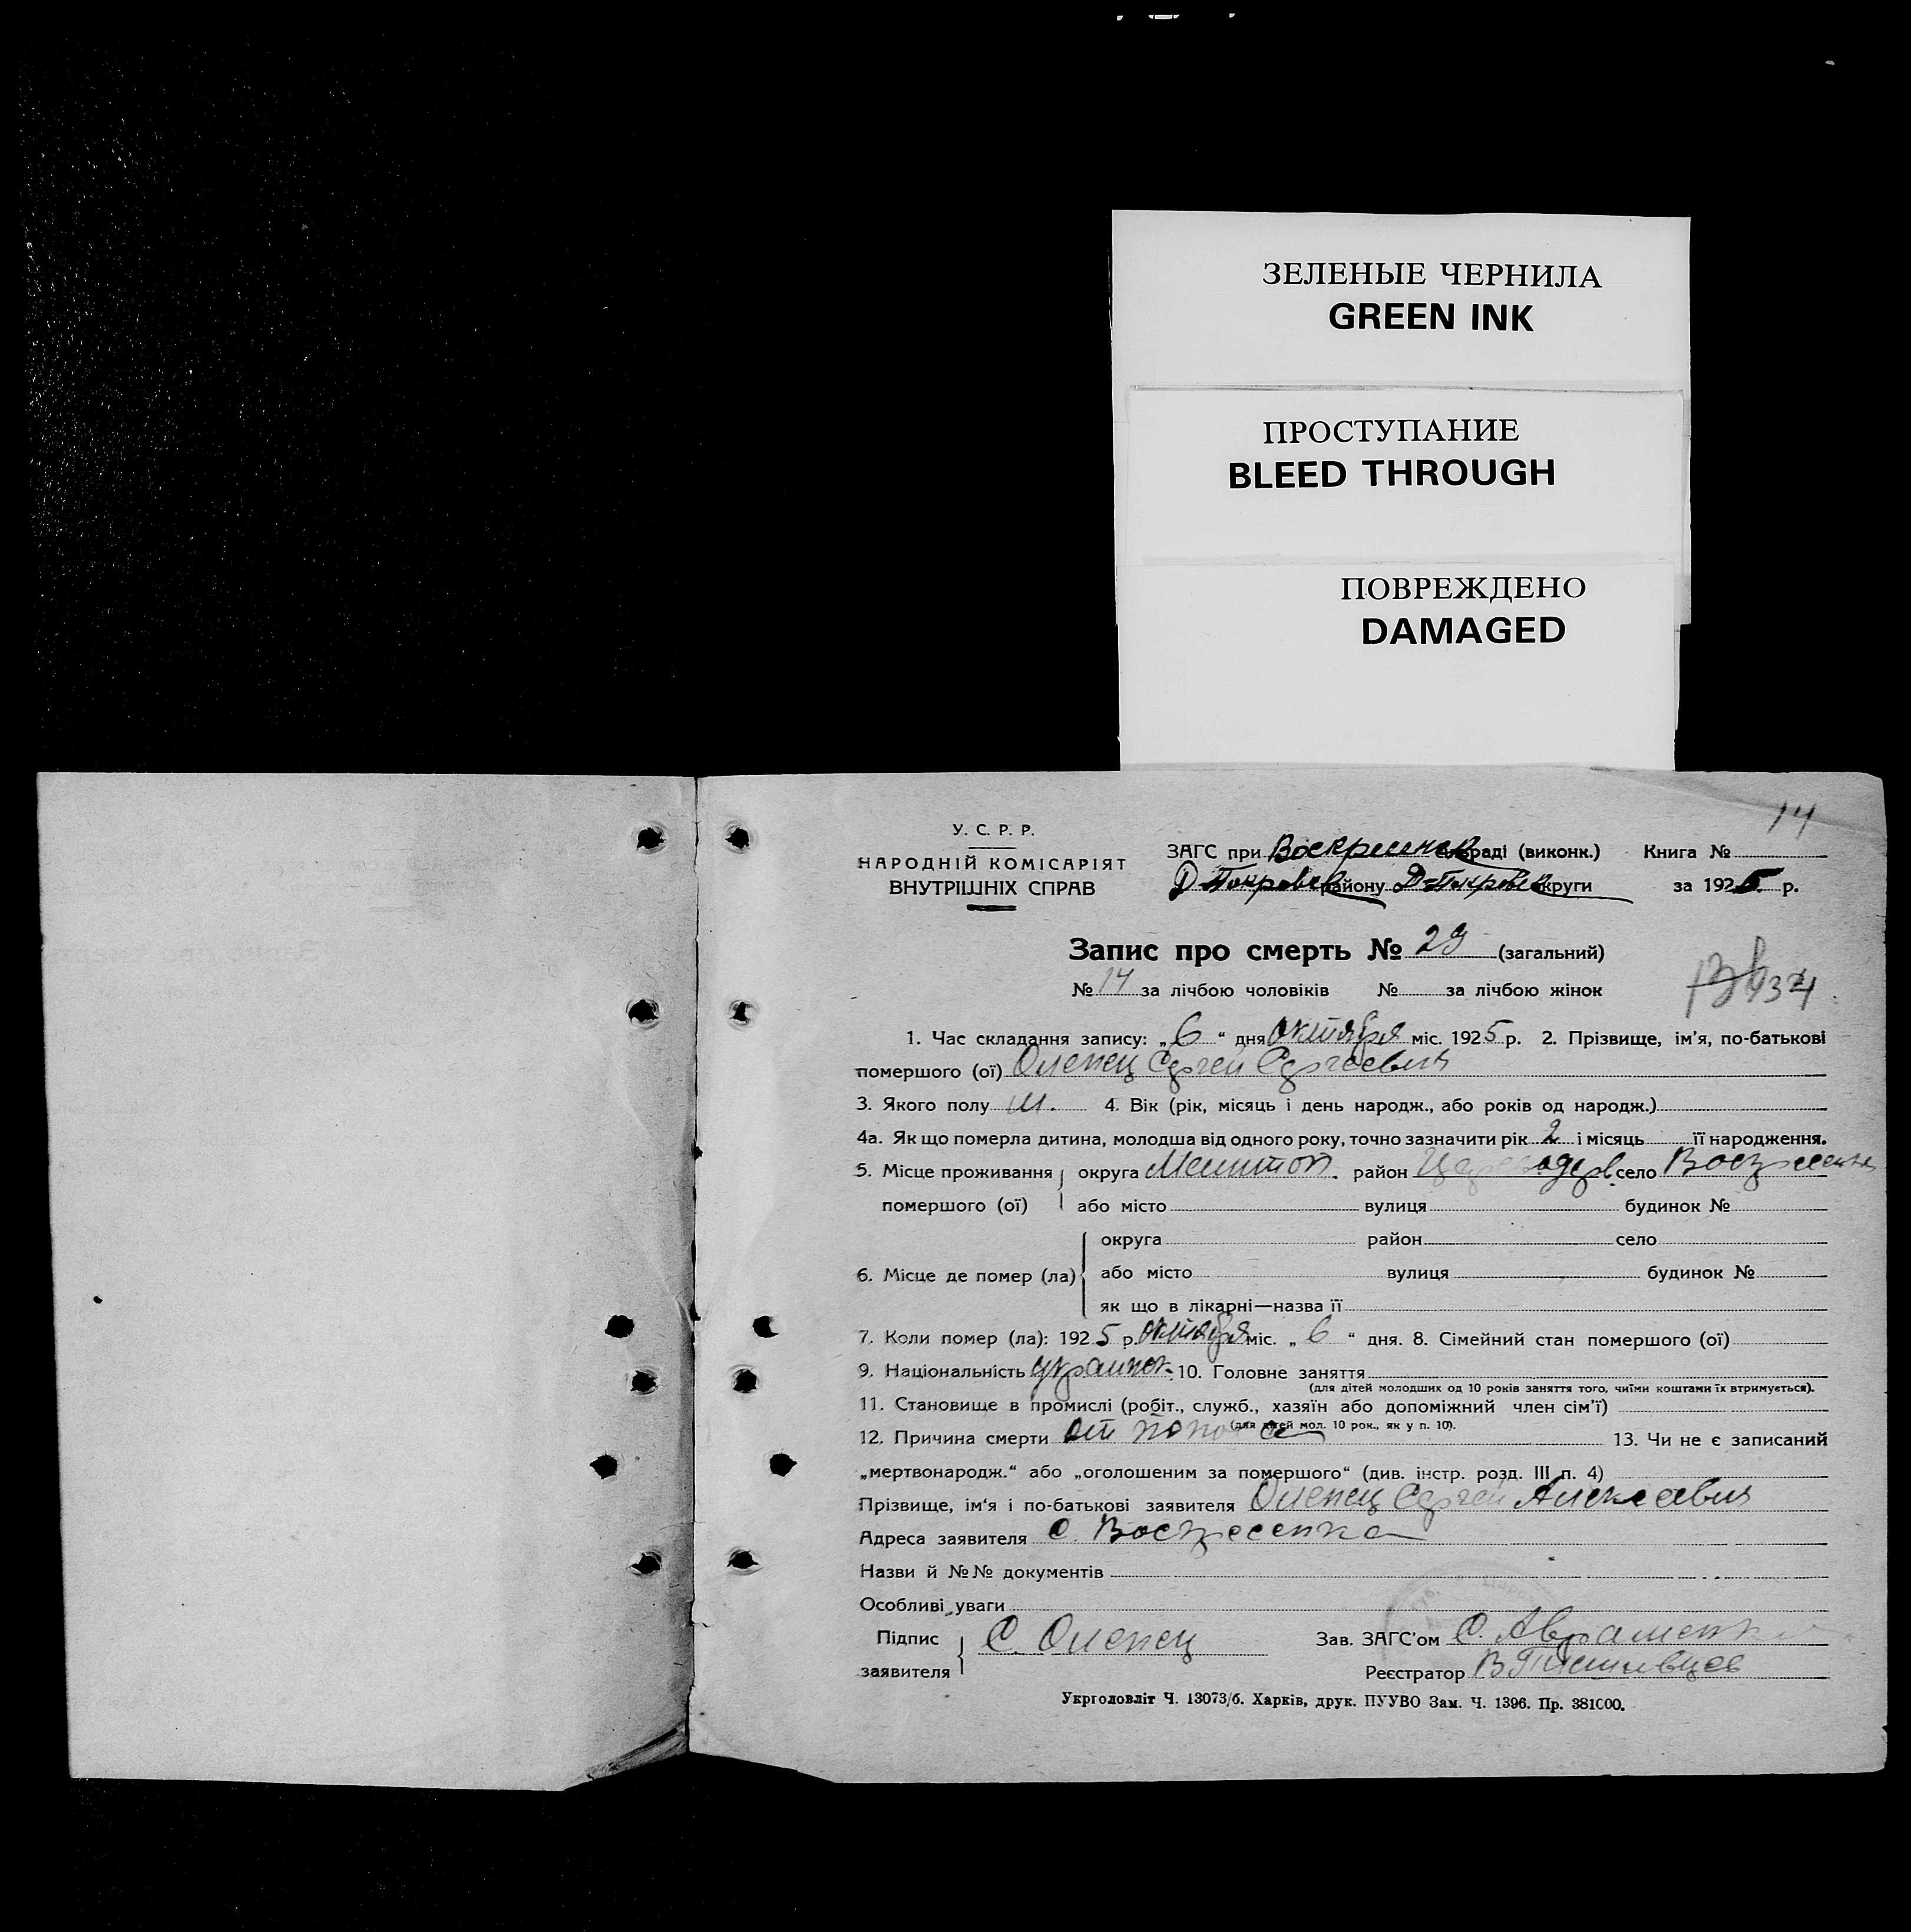 ЗЕЛЕНЫЕ ЧЕРНИЛА
GREEN INK
ПРОСТУПАНИЕ
BLEED THROUGH
ПОВРЕЖДЕНО
DAMAGED
14
У. С. Р. Р.
НАРОДНІЙ КОМІСАРІЯТ
ВНУТРІШНІХ СПРАВ
ЗАГС при раді (виконк.) Книга №
Д-Покровск району Д-Покровск округи за 1925 р.
Запис про смерть № 29 (загальний)
№ 14 за лічбою чоловіків № за лічбою жінок
1. Час складання запису: „ 6 “ дня октября міс. 1925 р. 2. Прізвище, ім'я, по-батькові
помершого (ої) Олепец Сергей Сергеевич
3. Якого полу м. 4. Вік (рік, місяць і день народж., або років од народж.)
4а. Як що померла дитина, молодша від одного року, точно зазначити рік 2 і місяць її народження.
5. Місце проживання округа Мелитоп. район село
помершого (ої) або місто вулиця будинок №
округа район село
6. Місце де помер (ла) або місто вулиця будинок №
як що в лікарні—назва її
7. Коли помер (ла): 1925 р. октября міс. „ 6 “ дня. 8. Сімейний стан помершого (ої)
9. Національність 10. Головне заняття
(для дітей молодших од 10 років заняття того, чиїми коштами їх втримується).
11. Становище в промислі (робіт., служб., хазяїн або допоміжний член сім'ї)
(для дітей мол. 10 рок., як у п. 10).
12. Причина смерти от поноса 13. Чи не є записаний
„мертвонародж.“ або „оголошеним за помершого“ (див. інстр. розд. III п. 4)
Прізвище, ім'я і по-батькові заявителя Олепец Сергей Алексеевич
Адреса заявителя с. Воскресенка
Назви й №№ документів
Особливі уваги
Підпис
заявителя С. Олепец
Зав. ЗАГС'ом С. Авраменко
Реєстратор
Укрголовліт Ч. 13073/б. Харків, друк. ПУУВО Зам. Ч. 1396. Пр. 381000.